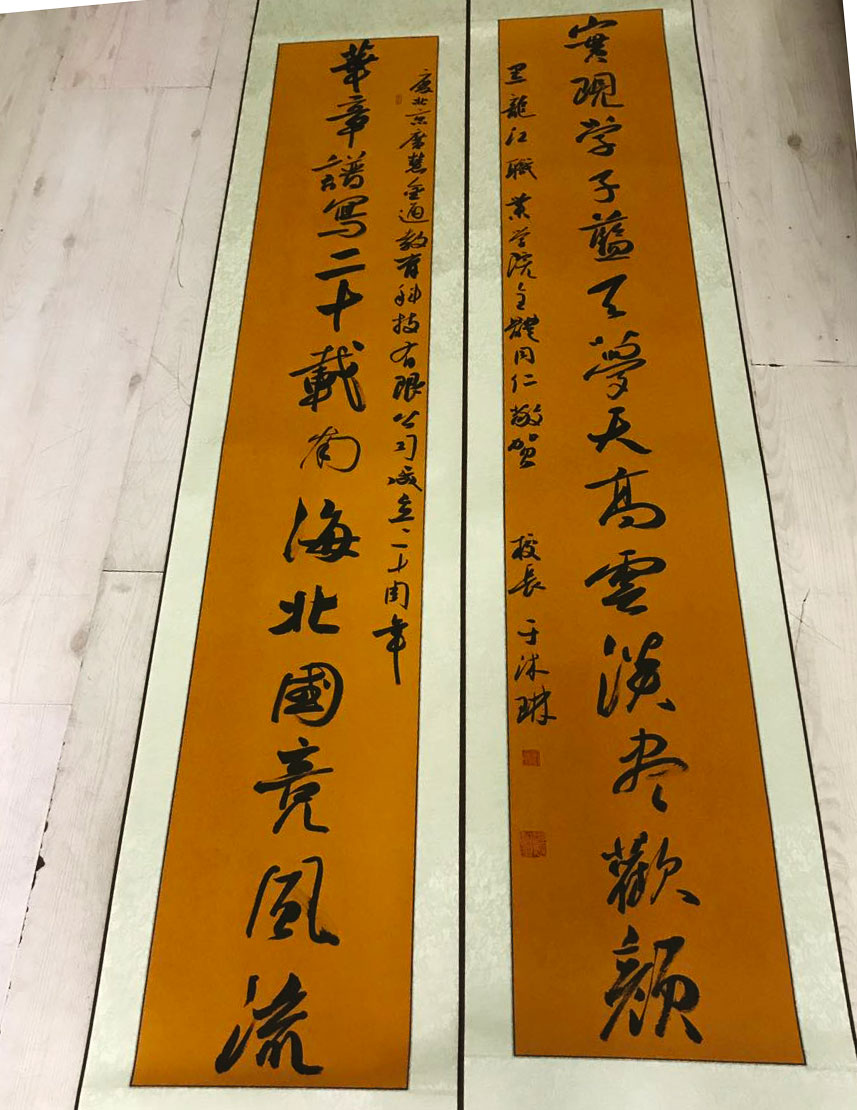 實現学子藍天夢天高雲淡尽歡顔
黑龍江職業学院全體同仁敬贺 校長 于沐琳
慶北京廣慧金通教育科技有限公司成立二十周年
華章譜寫二十載南海北國竞風流